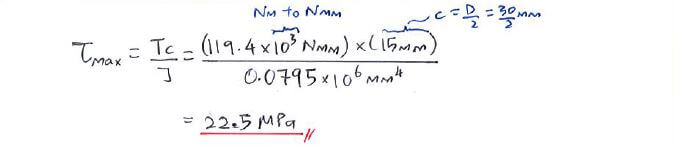 Nm to Nmm
c = D/2 = 30/2 mm
τmax = Tc/J = (119.4 × 10³ Nmm) × (15mm) / 0.0795 × 10⁶ mm⁴
= 22.5 MPa //